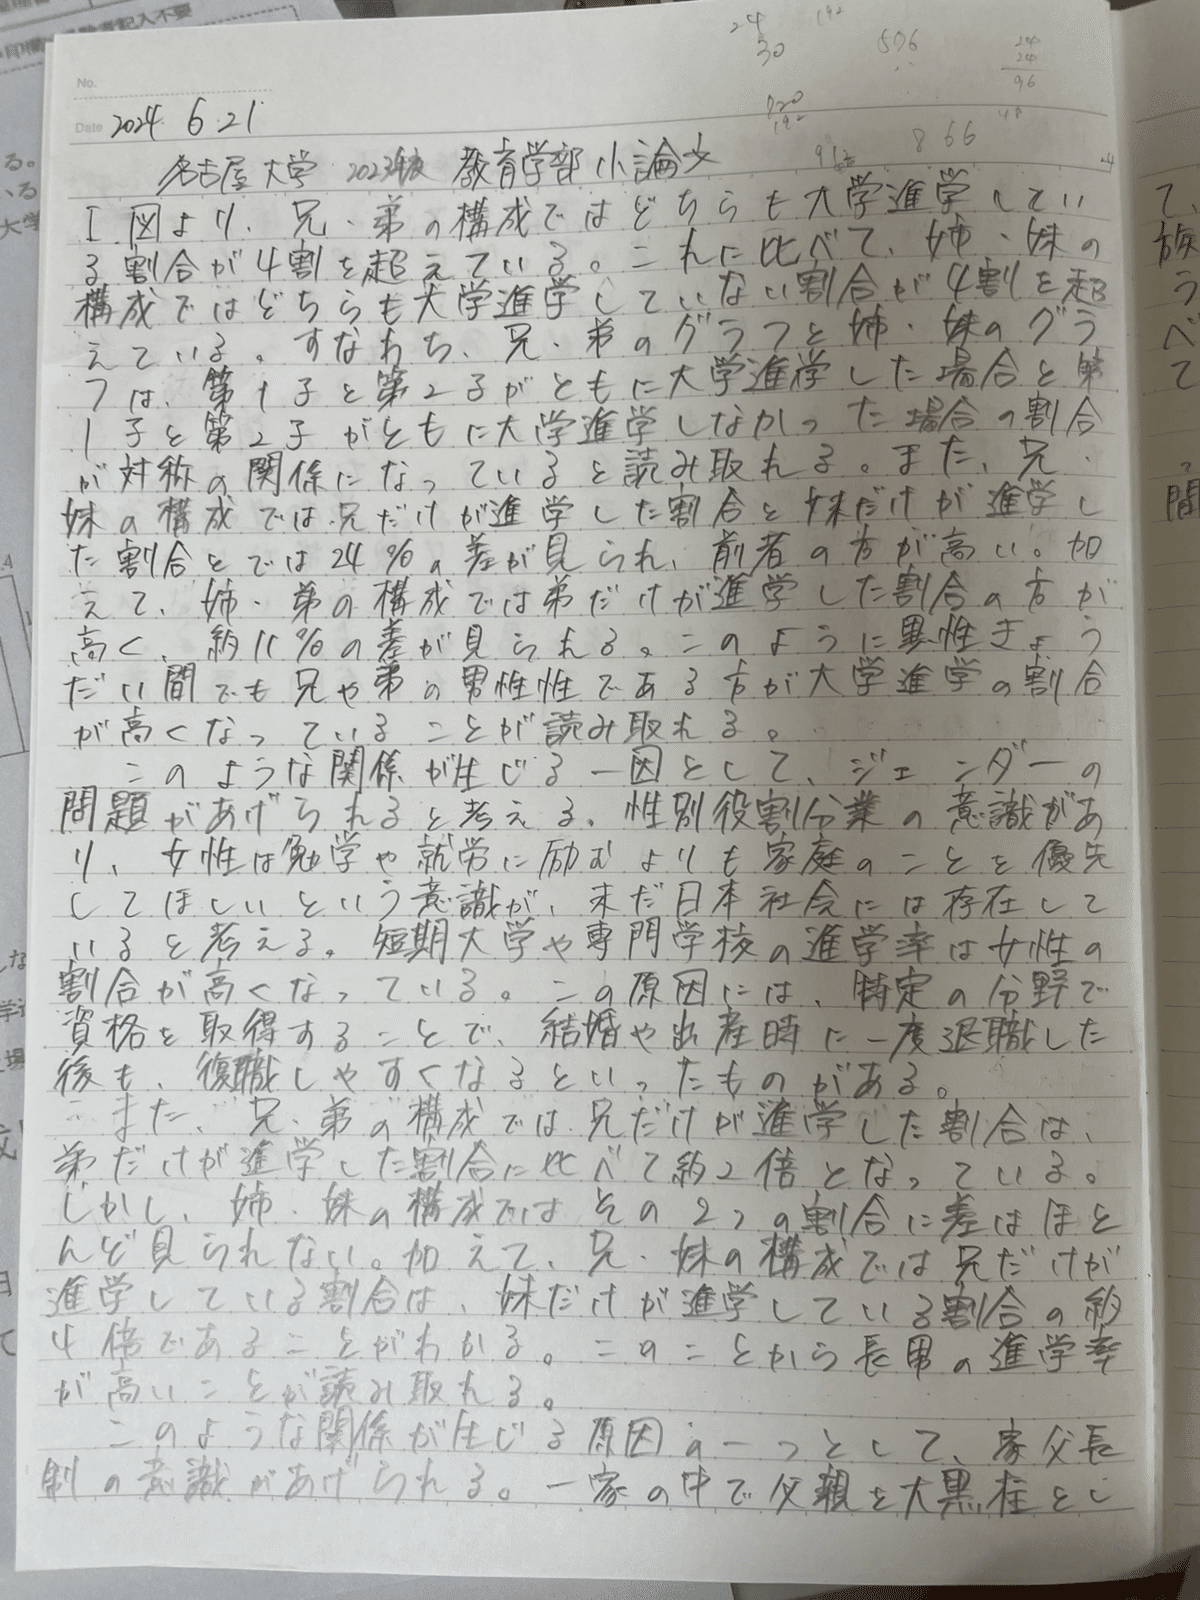 記入不要
24
30
192
506
24
24
96
No.
Date 2024. 6.21
720
192
48
912
866
名古屋大学 2023年度 教育学部 小論文
I 図より、兄・弟の構成ではどちらも大学進学してい
る割合が4割を超えている。これに比べて、姉・妹の
構成ではどちらも大学進学していない割合が4割を超
えている。すなわち、兄・弟のグラフと姉・妹のグラ
フは、第1子と第2子がともに大学進学した場合と第
1子と第2子がともに大学進学しなかった場合の割合
が対称の関係になっていると読み取れる。また、兄・
妹の構成では兄だけが進学した割合と妹だけが進学し
た割合とでは24%の差が見られ、前者の方が高い。加
えて、姉・弟の構成では弟だけが進学した割合の方が
高く、約11%の差が見られる。このように異性きょう
だい間でも兄や弟の男性性である方が大学進学の割合
が高くなっていることが読み取れる。
このような関係が生じる一因として、ジェンダーの
問題があげられると考える。性別役割分業の意識があ
り、女性は勉学や就労に励むよりも家庭のことを優先
してほしいという意識が、未だ日本社会には存在して
いると考える。短期大学や専門学校の進学率は女性の
割合が高くなっている。この原因には、特定の分野で
資格を取得することで、結婚や出産時に一度退職した
後も、復職しやすくなるといったものがある。
また、兄・弟の構成では兄だけが進学した割合は、
弟だけが進学した割合に比べて約2倍となっている。
しかし、姉・妹の構成ではその2つの割合に差はほと
んど見られない。加えて、兄・妹の構成では兄だけが
進学している割合は、妹だけが進学している割合の約
4倍であることがわかる。このことから長男の進学率
が高いことが読み取れる。
このような関係が生じる原因の一つとして、家父長
制の意識があげられる。一家の中で父親を大黒柱とし
て、
族
う
べ
て
間